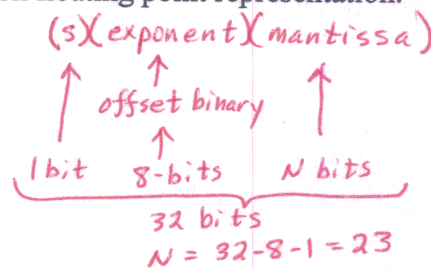 floating point representation.
(s)(exponent)(mantissa)
offset binary
1 bit 8-bits N bits
32 bits
N = 32-8-1 = 23